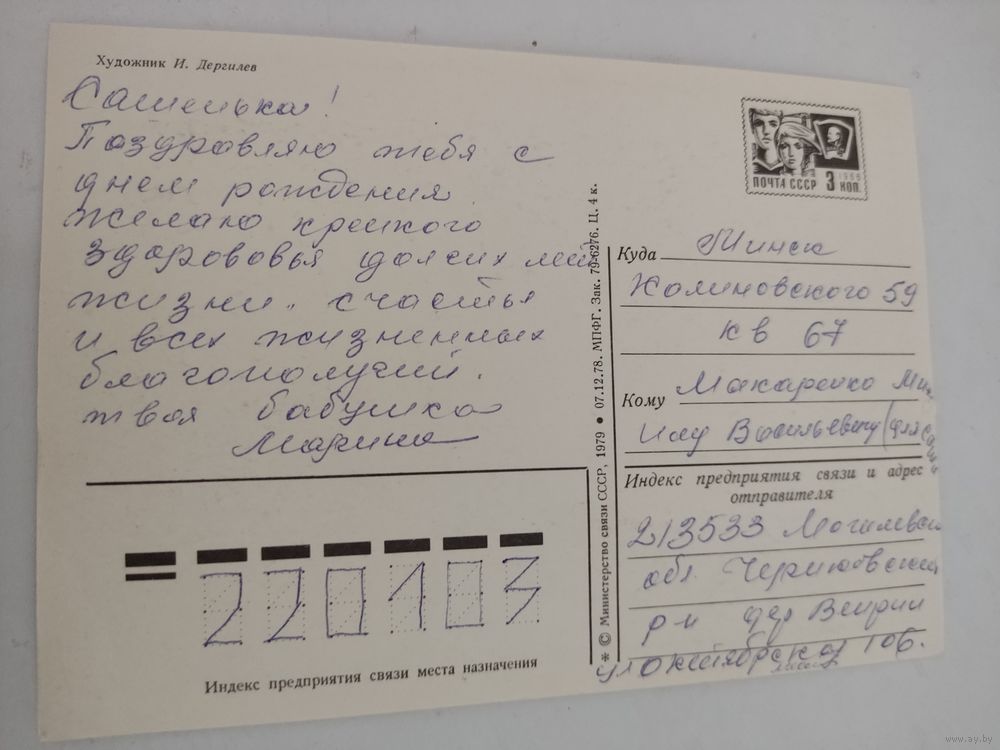 Художник И. Дергилев
Сашенька!
Поздравляю тебя с
днем рождения
желаю крепкого
здоровья долгих лет
жизни. счастья
и всех жизненных
благополучий.
твоя бабушка
Марина
220103
Индекс предприятия связи места назначения
* © Министерство связи СССР, 1979 • 07.12.78. МПФГ. Зак. 79-6276. Ц. 4 к.
ПОЧТА СССР 3 КОП. 1966
Куда Минск
Калиновского 59
кв 67
Кому Макаренко Ми
Васильевичу (для
Индекс предприятия связи и адрес
отправителя
213533 Могилевск
обл. Чериковский
р-н дер Веприн
ул октябрьская 106.
www.ay.by